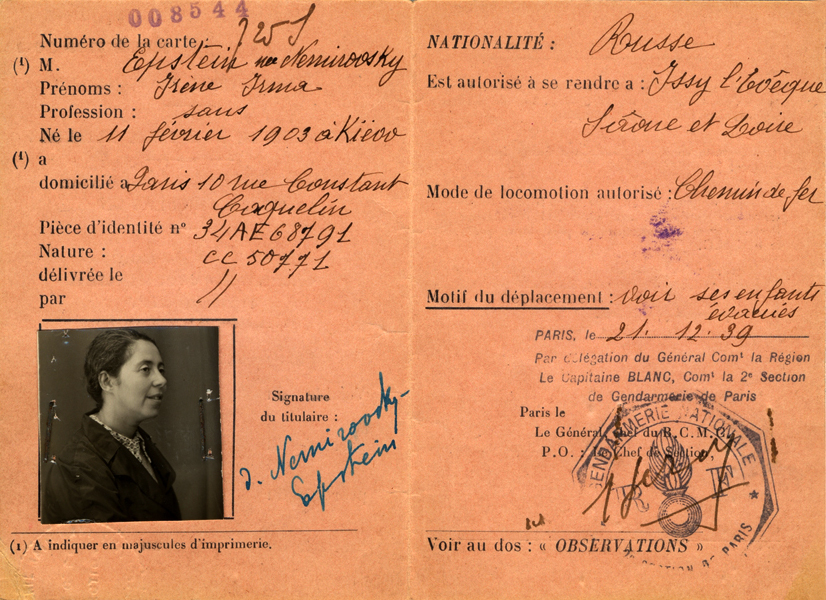 008544
Numéro de la carte : 7251
(1) M. Epstein née Nemirovsky
Prénoms : Irène Irma
Profession : sans
Né le 11 février 1903 à Kiew
(1) a
domicilié a Paris 10 rue Constant
Coquelin
Pièce d'identité n° 34AE68791
Nature : CC 50771
délivrée le
par //
Signature
du titulaire :
I. Nemirovsky-
Epstein
(1) A indiquer en majuscules d'imprimerie.
NATIONALITÉ : Russe
Est autorisé à se rendre a : Issy l'Evêque
Saône et Loire
Mode de locomotion autorisé : Chemin de fer
Motif du déplacement : voir ses enfants
évacués
PARIS, le 21. 12. 39
Par délégation du Général Comt la Région
Le Capitaine BLANC, Comt la 2e Section
de Gendarmerie de Paris
Paris le
Le Général Chef du R.C.M.
P.O. : Le Chef de Section,
GENDARMERIE NATIONALE
SECTION DE PARIS
Voir au dos : « OBSERVATIONS »